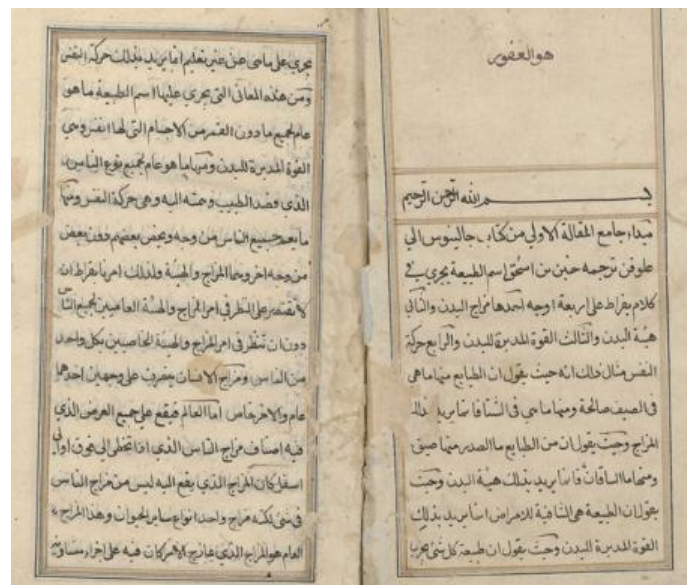 هو الغفور
بسم الله الرحمن الرحيم
مبداء جامع المقالة الاولي من كتاب جالينوس الي
غلوقن ترجمه حنين بن اسحق اسم الطبيعة يجري في
كلام بقراط على اربعة اوجه احدها مزاج البدن والثاني
هيئة البدن والثالث القوة المدبرة للبدن والرابع حركة
النفس مثال ذلك انه حيث يقول ان الطبايع منها ما هي
في الصيف صالحة ومنها ما هي في الشتا فانما يريد بذلك
المزاج وحيث يقول ان من الطبايع ما الصدر منها ضيق
ومنها ما الساقان فانما يريد بذلك هيئة البدن وحيث
يقول ان الطبيعة هي الشافية للامراض انما يريد بذلك
القوة المدبرة للبدن وحيث يقول ان طبيعة كل شئ يجري
يجري على ما هي عن غير تعليم انما يريد بذلك حركة النفس
ومن هذه المعاني التي يجري عليها اسم الطبيعة ما هو
عام لجميع ما دون القمر من الاجسام التي لها انفس وهي
القوة المدبرة للبدن ومنها ما هو عام لجميع نوع الناس
الذي قصد الطبيب وهمته اليه وهي حركة النفس ومنها
ما يعم جميع الناس من وجه ويخص بعضهم دون بعض
من وجه اخر وهما المزاج والهيئة ولذلك امرنا بقراط ان
لا نقتصر على النظر في امر المزاج والهيئة العاميين لجميع الناس
دون ان ننظر في امر المزاج والهيئة الخاصيين بكل واحد
من الناس ومزاج الانسان يتصرف على وجهين احدهما
عام والاخر خاص اما العام فيقع على جميع العرض الذي
فيه اصناف مزاج الناس الذي اذا تخطى الى فوق او الى
اسفل كان المزاج الذي يقع اليه ليس من مزاج الناس
في شئ لكنه مزاج واحد انواع ساير الحيوان وهذا المزاج
العام هو المزاج الذي الاركان فيه على اجزاء متساوية